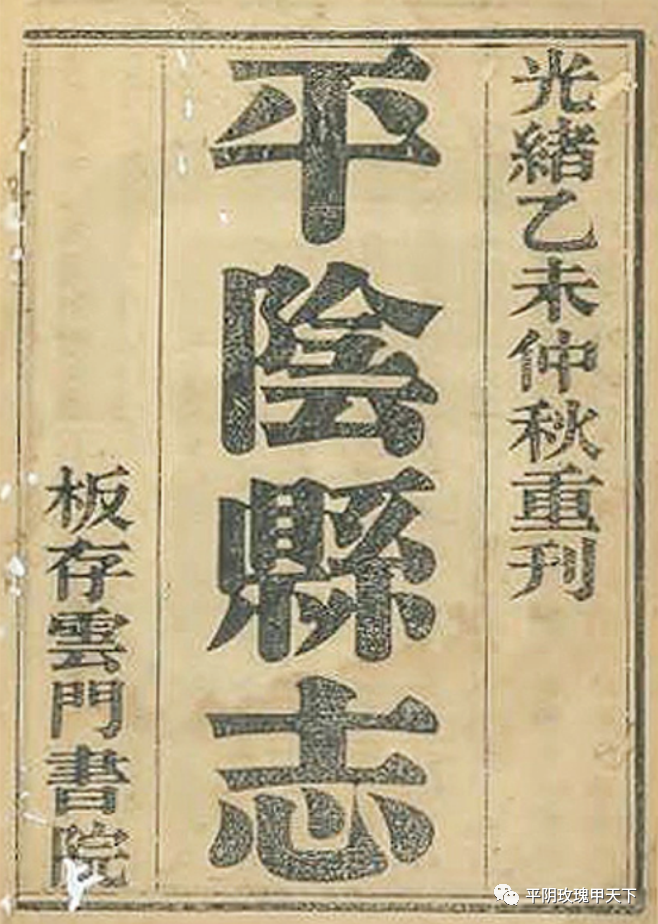 光緒乙未仲秋重刊
平陰縣志
板存雲門書院
平阴玫瑰甲天下